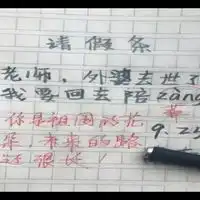 请假条
老师，外婆去世了
我要回去陪zàng
葬
你是祖国的花 9.25
朵，未来的路
还很长！